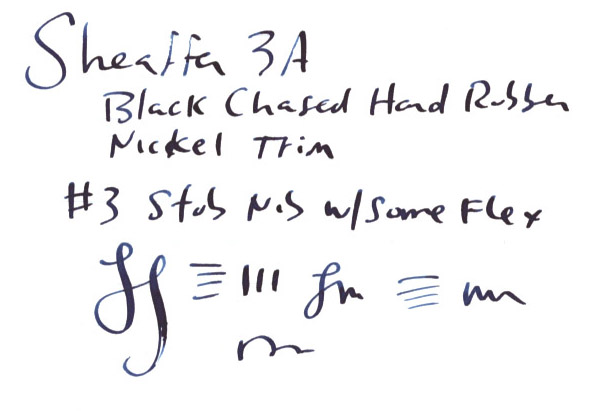 Sheaffer 3A
Black Chased Hard Rubber
Nickel Trim
#3 Stub Nib w/some Flex